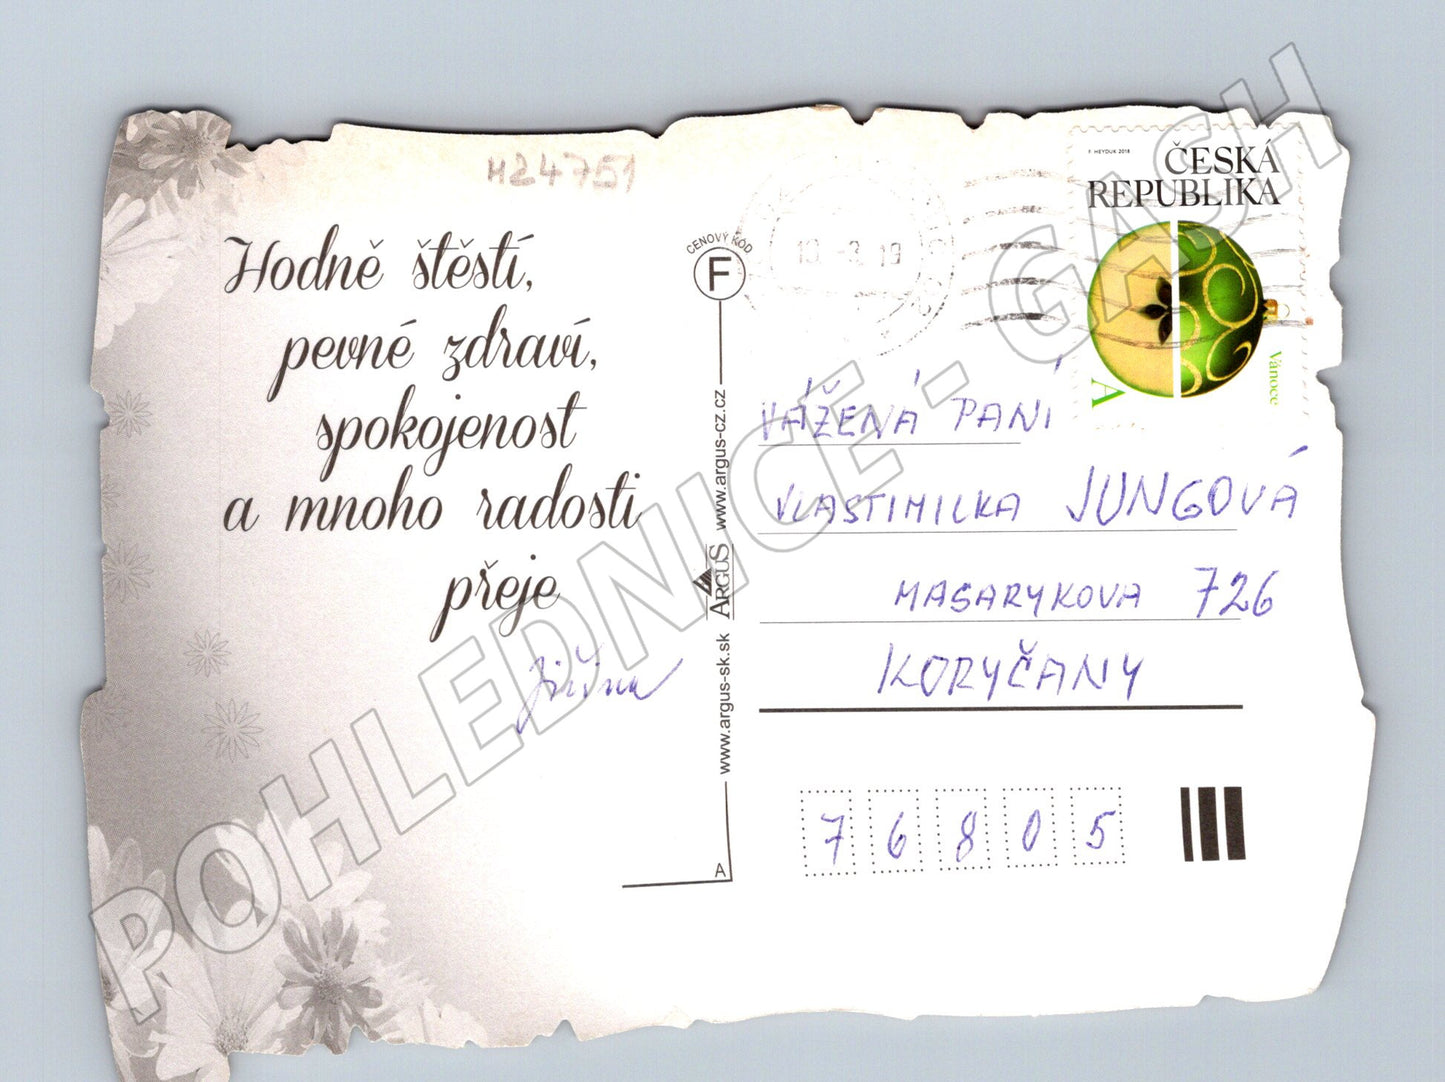 H24751
Hodně štěstí,
pevné zdraví,
spokojenost
a mnoho radosti
přeje
Jiřina
CENOVÝ KÓD
F
www.argus-sk.sk ARGUS www.argus-cz.cz
A
F. HEYDUK 2018
ČESKÁ
REPUBLIKA
A
Vánoce
-3. 19
VÁŽENÁ PANÍ
VLASTIMILKA JUNGOVÁ
MASARYKOVA 726
KORYČANY
76805
POHLEDNICE - GASH